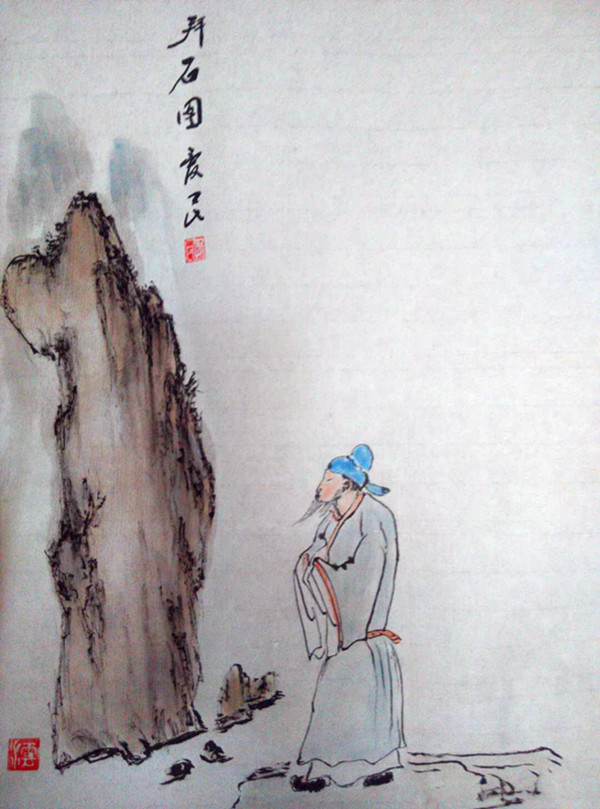 拜石图 爱民